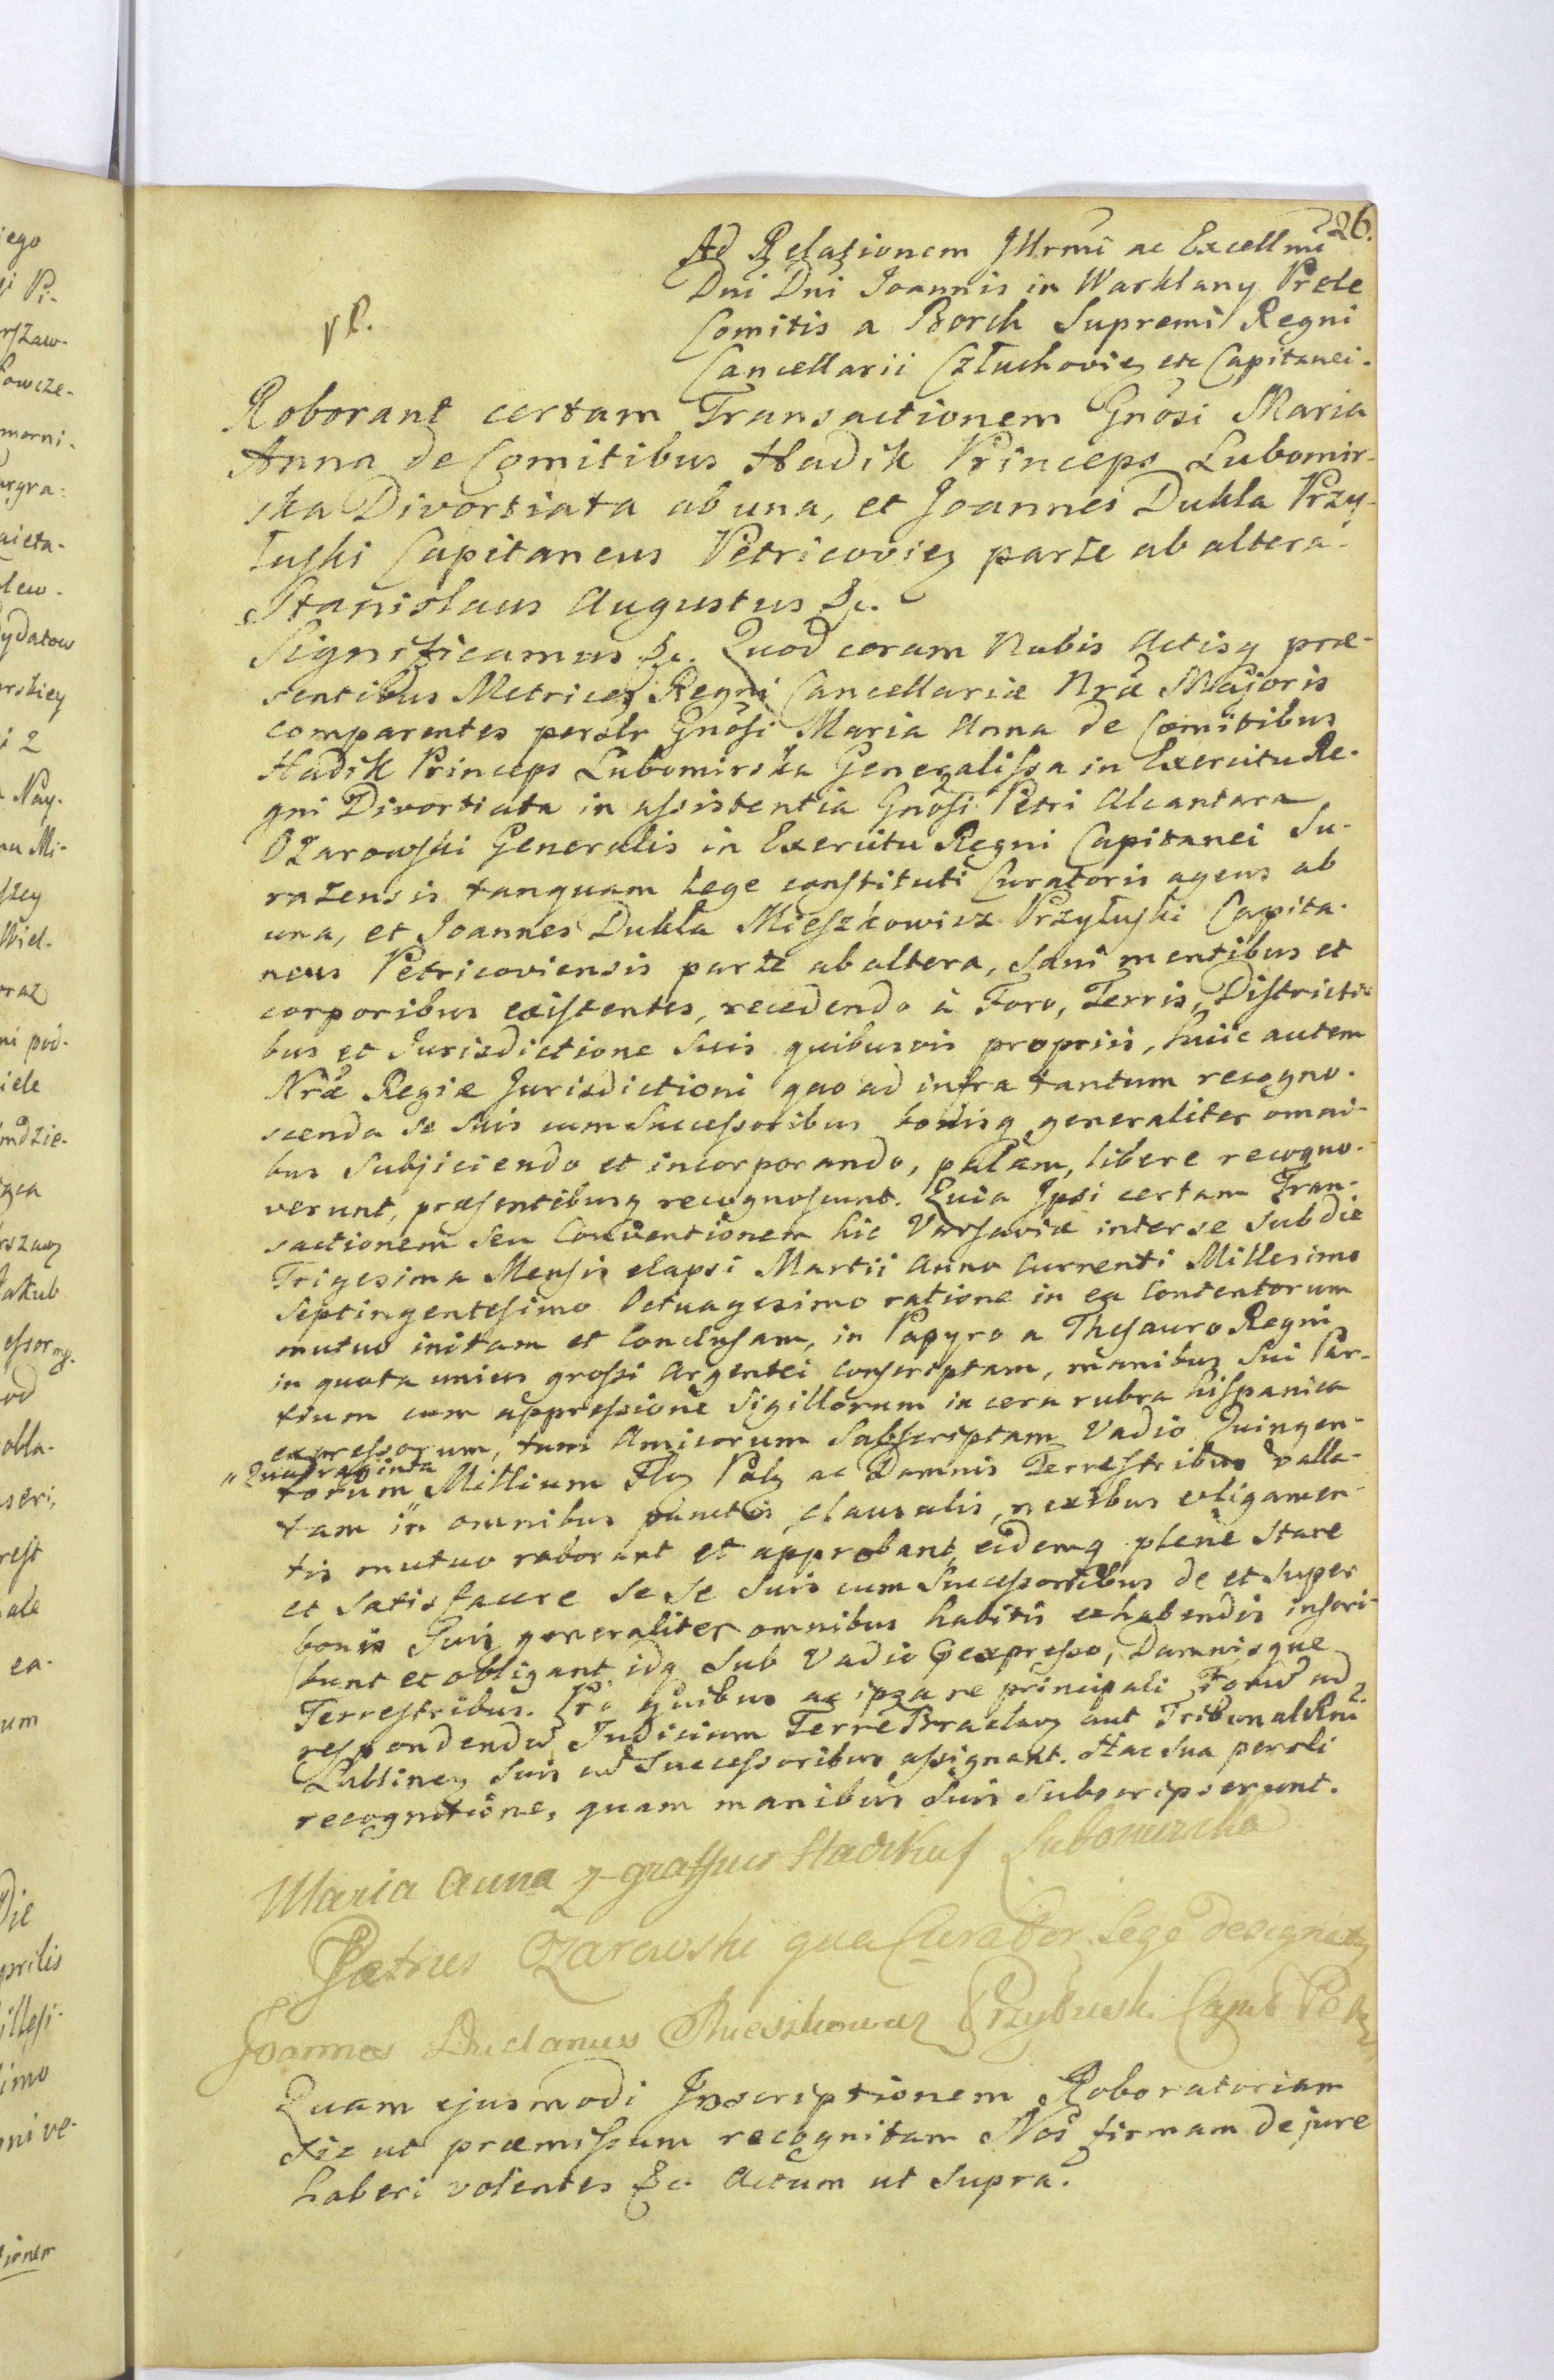 26.
Ad Relationem Jllrmi ac Excellmi
Dni Dni Joannis in Warklany Prele
Comitis a Borch Supremi Regni
Cancellarii Człuchovien etc Capitanei.
Roborant certam Transactionem Gnosi Maria
Anna de Comitibus Hadik Princeps Lubomir-
ska Divortiata ab una, et Joannes Dukla Przy-
łuski Capitaneus Petricovien parte ab altera.
Stanislaus Augustus &c.
Significamus &c. Quod coram Nobis Actisq præ-
sentibus Metrices Regni Cancellariæ Nræ Majoris
comparentes persolr Gnosi Maria Anna de Comitibus
Hadik Princeps Lubomirska Generalissa in Exercitu Re-
gni Divortiata in assistentia Gnosi Petri Alcantara
Ożarowski Generalis in Exercitu Regni Capitanei Su-
razensis tanquam Lege constituti Curatoris agens ab
una, et Joannes Dukla Mieszkowicz Przyłuski Capita-
neus Petricoviensis parte ab altera, sani mentibus et
corporibus existentes, recedendo à Foro, Terris, Districti-
bus et Jurisdictione suis quibusvis propriis, huic autem
Nræ Regiæ Jurisdictioni quo ad infra tantum recogno-
scenda se suis cum Successoribus bonisq generaliter omni-
bus subjiciendo et incorporando, palam, libere recogno-
verunt, præsentibusq recognoscunt. Quia Ipsi certam Tran-
sactionem seu Conventionem hic Varsaviæ inter se sub die
Trigesima Mensis elapsi Martii Anno Currenti Millesimo
Septingentesimo Octuagesimo ratione in ea Contentorum
mutuo initam et Conclusam, in Papyro a Thesauro Regni
in quota unius grossi Argentei conscriptam, manibus sui Par-
tium cum appressione Sigillorum in cera rubra hispanica
expressorum, tum Amicorum Subscriptam Vadio Quingen-
"Quadraginta
torum " Millium Flor Pol ac Damnis Terrestribus valla-
tam in omnibus punctis, clausulis, nexibus et ligamen-
tis mutuo roborant et approbant, eidemq plene stare
et satisfacere se se suis cum Successoribus de et super
bonis suis generaliter omnibus habitis et habendis inscri-
bunt et obligant, idq sub Vadio expresso, Damnisque
Terrestribus. Pro quibus ac ipsa re principali Forum ad
respondendum Judicium Terre Braclav aut Tribunal Rni
Lublinen suis cum Successoribus assignant. Hac sua persoli
recognitione, quam manibus suis subscripserunt.
Maria Anna z graffuw Hadikuf Lubomirska
Petrus Ożarowski qua Curator Lege designatus
Joannes Duclanus Mieszkowicz Przyłuski Capit Petr
Quam ejusmodi Inscriptionem Roboratoriam
sic ut præmissum recognitam Nos firmam de jure
haberi volentes &c. Actum ut supra.